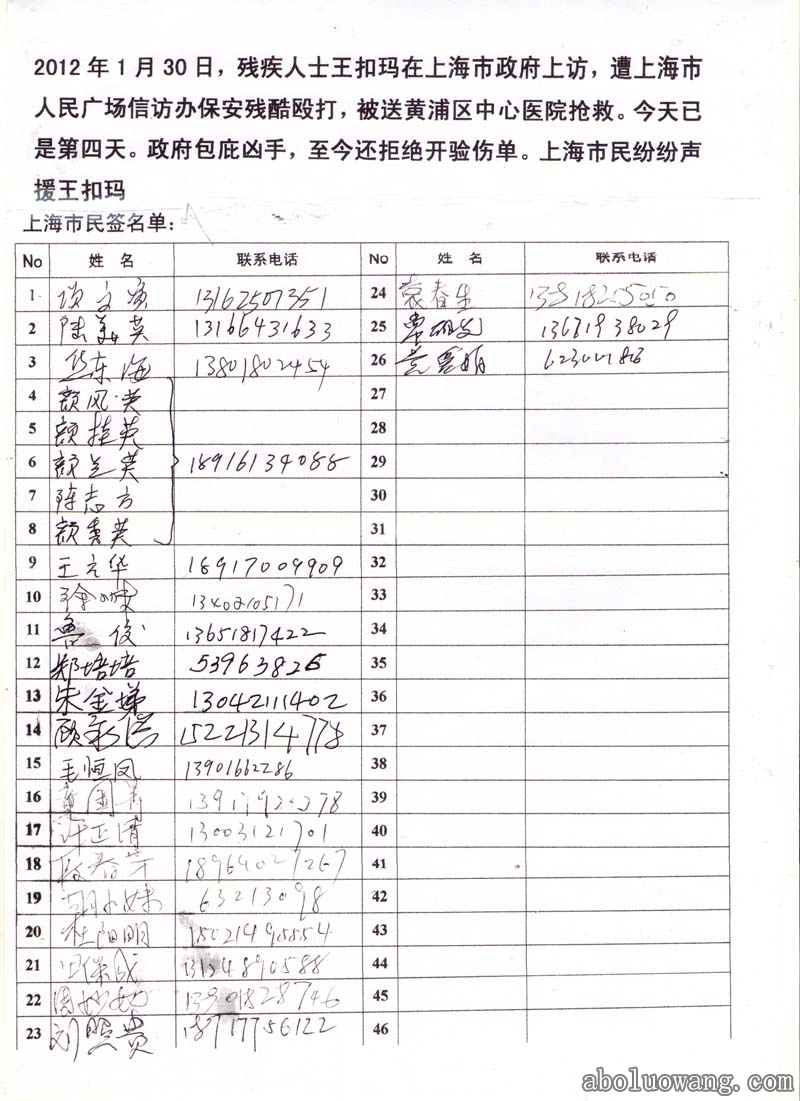 2012年1月30日，残疾人士王扣玛在上海市政府上访，遭上海市
人民广场信访办保安残酷殴打，被送黄浦区中心医院抢救。今天已
是第四天。政府包庇凶手，至今还拒绝开验伤单。上海市民纷纷声
援王扣玛
上海市民签名单：
No 姓 名 联系电话 No 姓 名 联系电话
1 13162507351 24 春生
2 陆 英 13166431633 25 13681938029
3 华东海 13801802454 26
4 颜凤英 27
5 颜桂英 28
6 颜兰英 18916134088 29
7 陈志方 30
8 颜秀英 31
9 王元华 18917009909 32
10 13402105171 33
11 鲁俊 13651817422 34
12 郑培培 53963826 35
13 朱金娣 13042111402 36
14 顾 15221314778 37
15 毛恒凤 13901662286 38
16 39
17 许正清 13003121701 40
18 18964027267 41
19 胡小妹 63213098 42
20 杜阳明 43
21 13124890588 44
22 周妙 13901828746 45
23 刘 18717756122 46
aboluowang.com